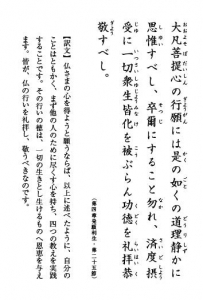 大凡菩提心の行願には是の如くの道理静かに
思惟すべし、卒爾にすること勿れ、済度摂
受に一切衆生皆化を被ぶらん功徳を礼拝恭
敬すべし。
（第四章発願利生・第二十五節）
【訳文】仏さまの心を得ようと願うならば、以上に述べたように、自分の
ことはともかく、まず他の人のために尽くす心を持ち、四つの教えを実践
することです。その行いの徳は、一切の生きとし生けるもの、恩恵を与え
ます。皆が、仏の行いを礼拝し、敬うべきなのです。